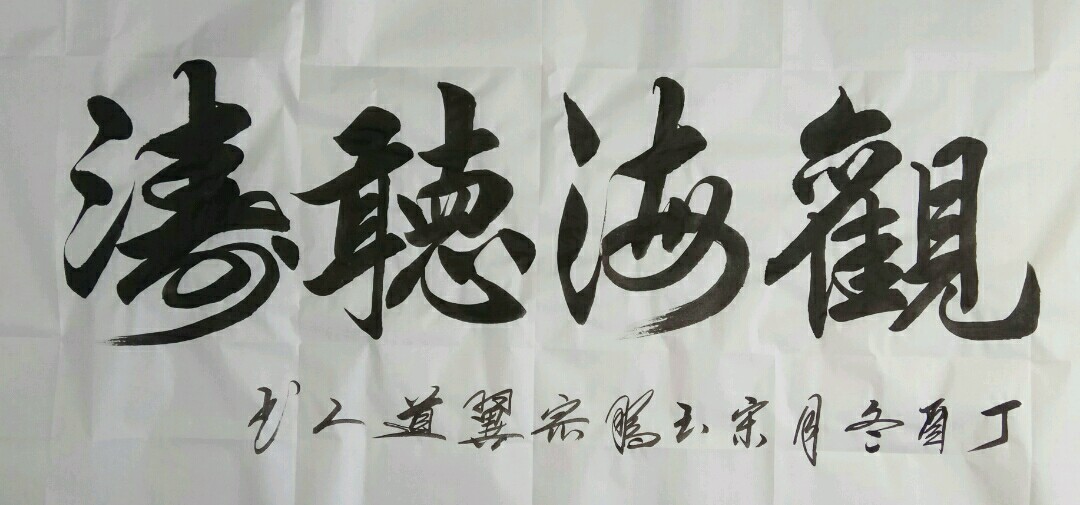 觀海聽濤
丁酉冬月宋玉鵬宗翼道人书